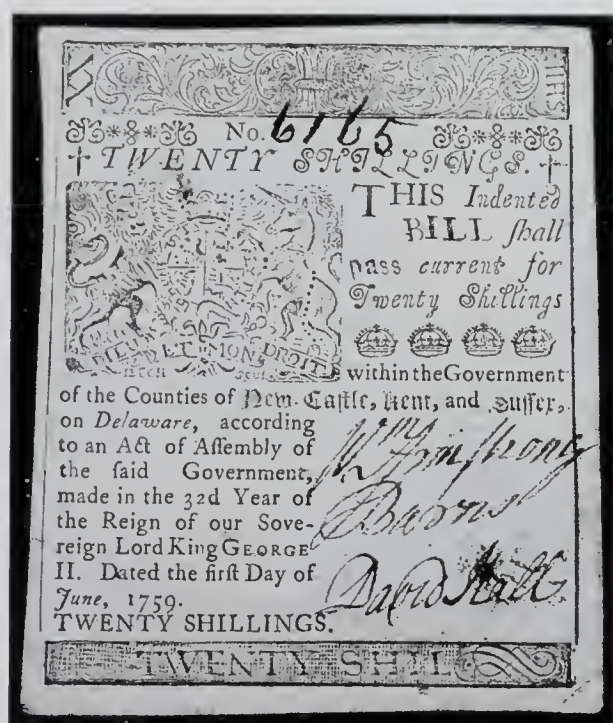 SHIL
No. 6165
TWENTY SHILLINGS.
THIS Indented
BILL ſhall
paſs current for
Twenty Shillings
DIEU ET MON DROIT
within the Government
of the Counties of New-Caſtle, Kent, and Suſſex,
on Delaware, according
to an Act of Aſſembly of
the ſaid Government,
made in the 32d Year of
the Reign of our Sove-
reign Lord King GEORGE
II. Dated the firſt Day of
June, 1759.
TWENTY SHILLINGS.
Wm Armſtrong
Barns
David Hall
TWENTY SHIL